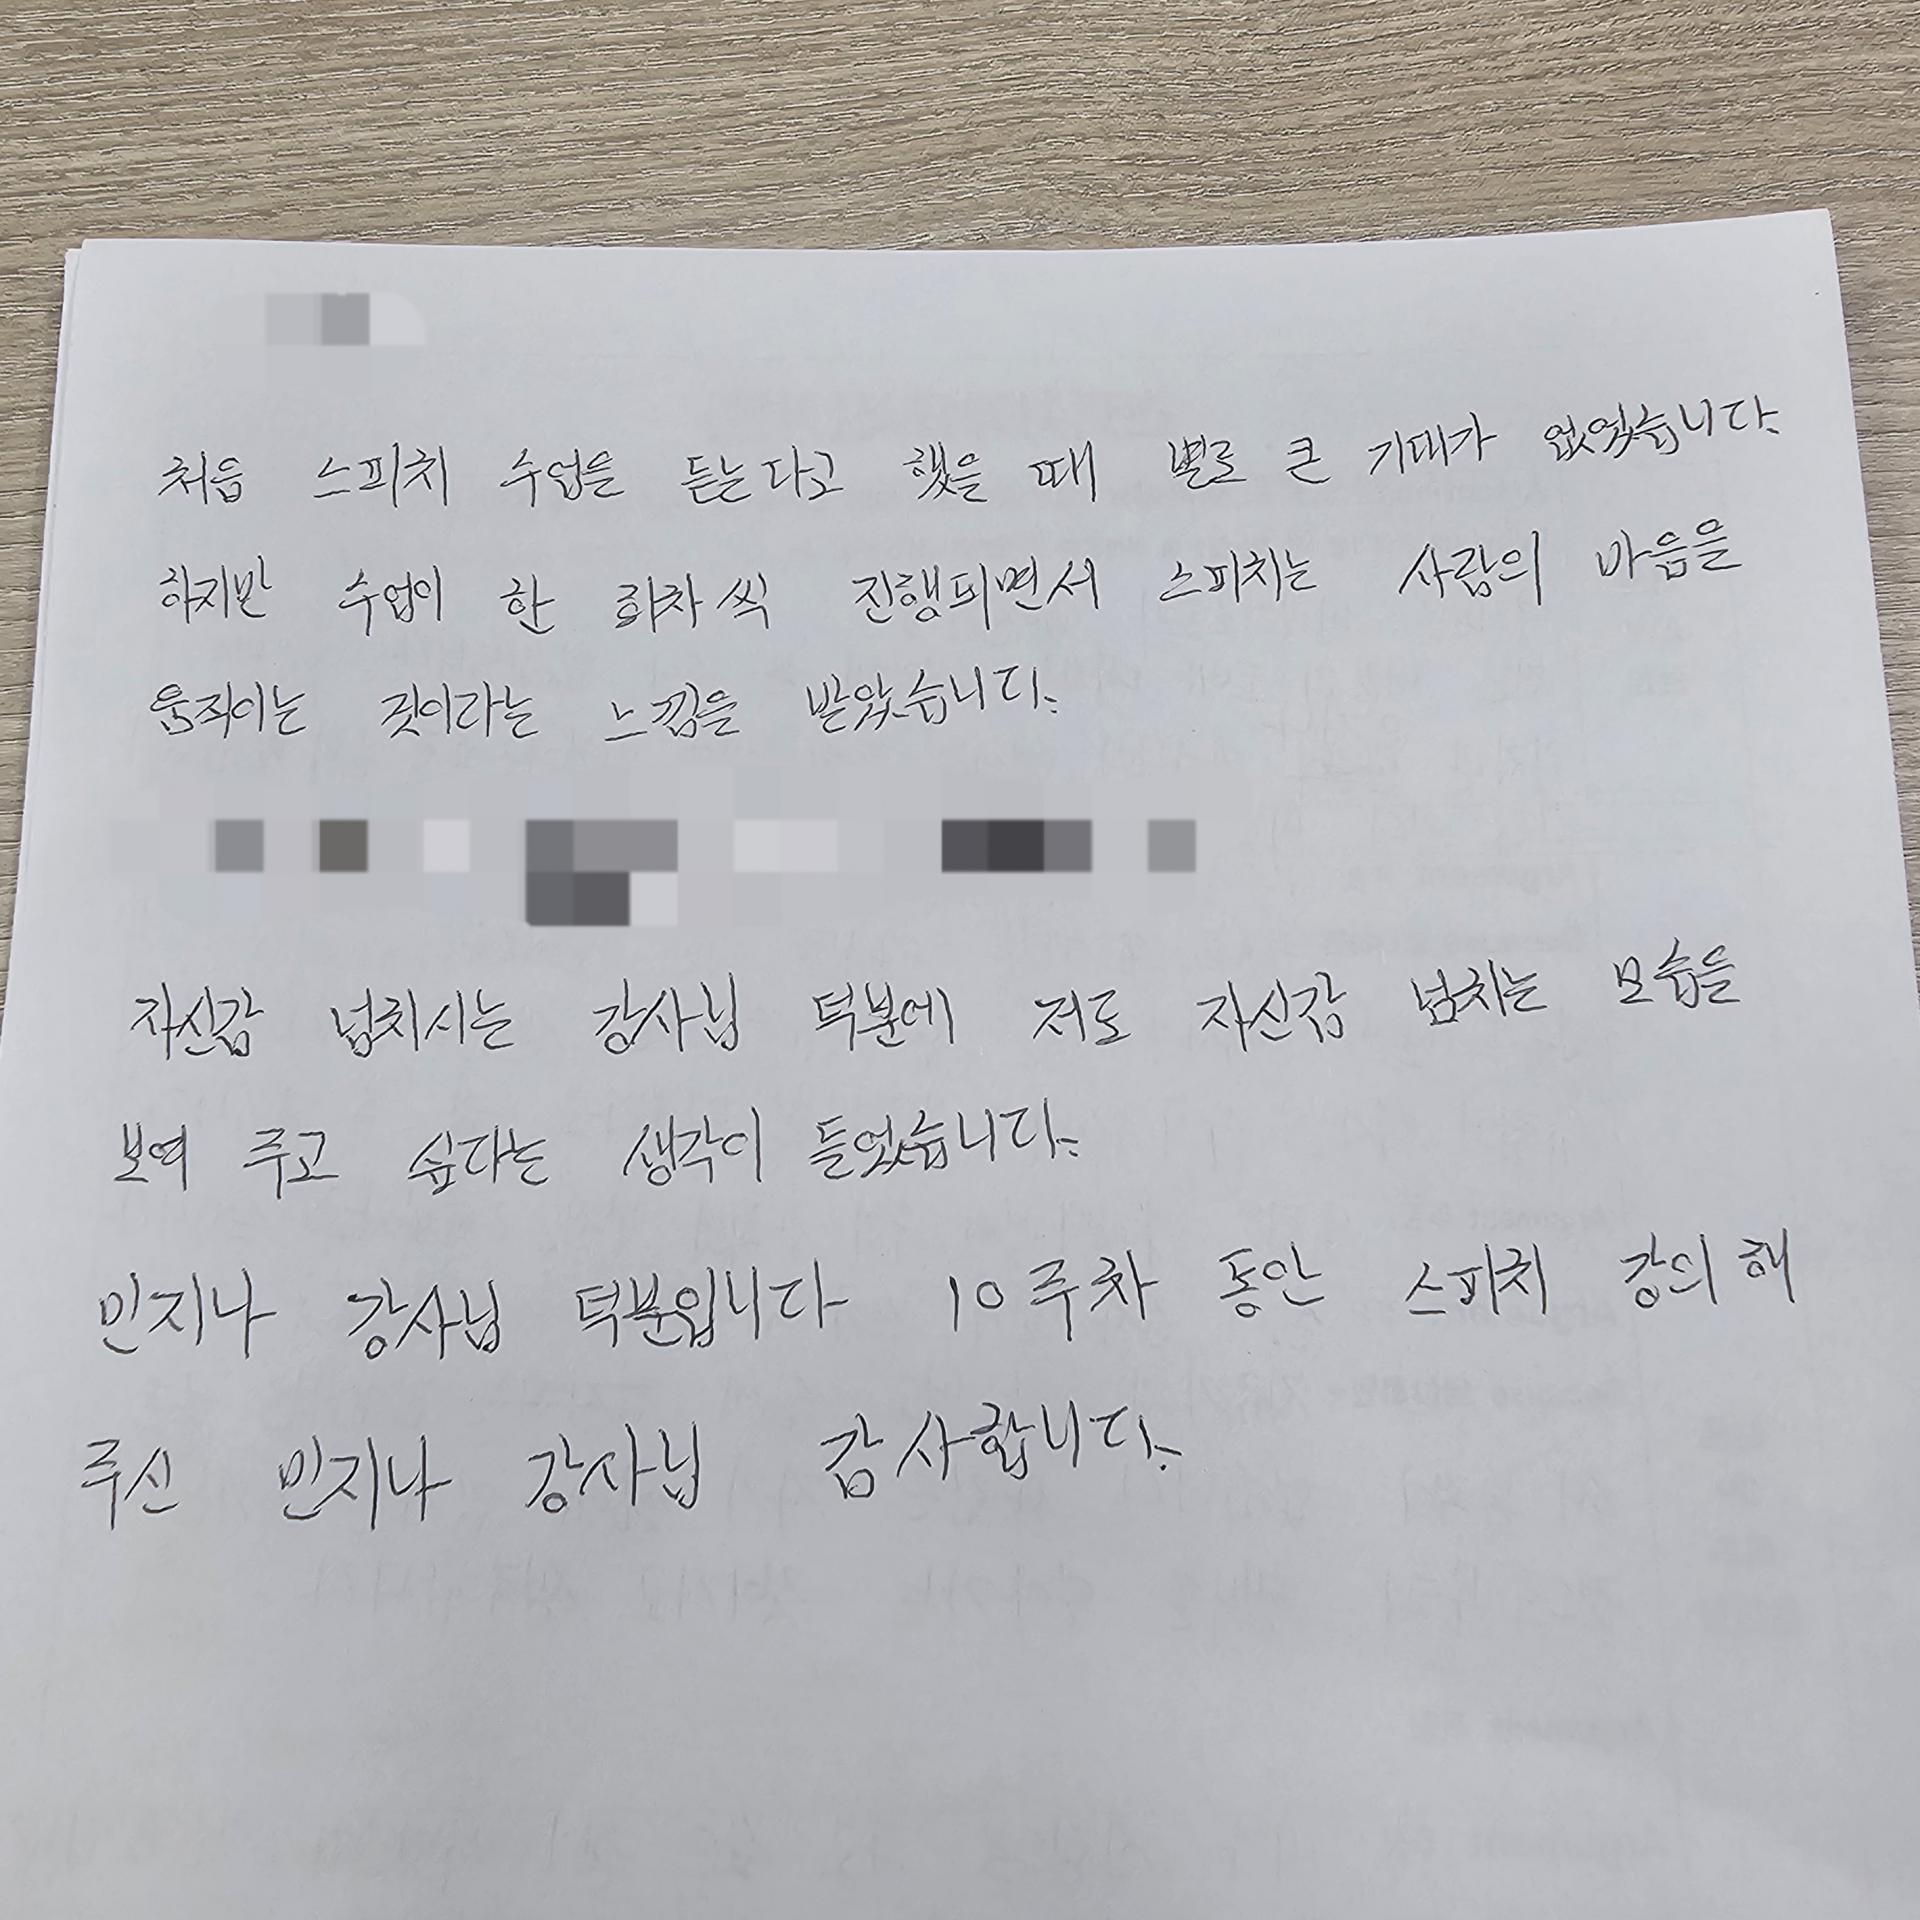 처음 스피치 수업을 듣는다고 했을 때 별로 큰 기대가 없었습니다.
하지만 수업이 한 회차씩 진행되면서 스피치는 사람의 마음을
움직이는 것이라는 느낌을 받았습니다.
자신감 넘치시는 강사님 덕분에 저도 자신감 넘치는 모습을
보여 주고 싶다는 생각이 들었습니다.
민지나 강사님 덕분입니다 10주차 동안 스피치 강의해
주신 민지나 강사님 감사합니다.